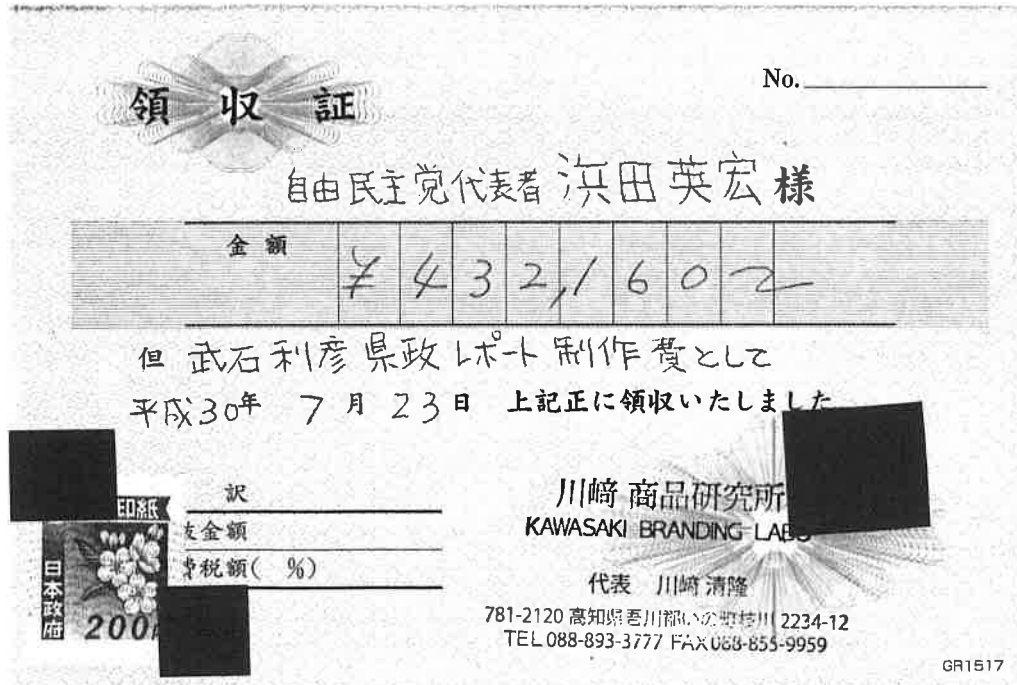 領 収 証
No.
自由民主党代表者 浜田英宏 様
金 額
¥432,160
但 武石利彦県政レポート制作費として
平成30年 7 月 23 日 上記正に領収いたしました
印紙
日本政府
200
訳
金額
税額( %)
川﨑 商品研究所
KAWASAKI BRANDING LABO
代表 川﨑 清隆
781-2120 高知県吾川郡いの町枝川 2234-12
TEL 088-893-3777 FAX 088-855-9959
GR1517